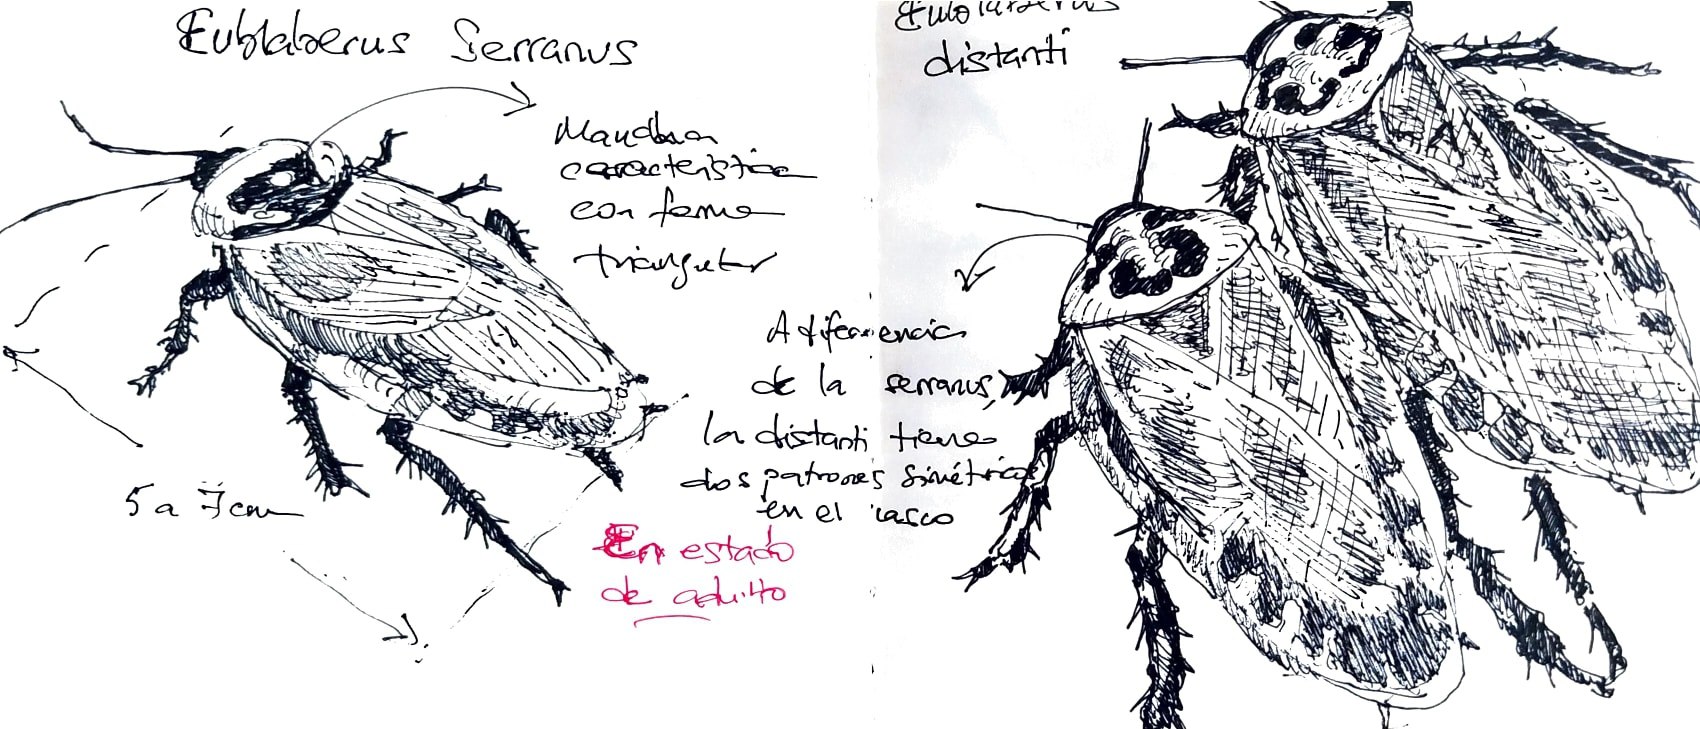 Eublaberus Serranus
Mancha
característica
con forma
triangular
5 a 7cm
En estado
de adulto
Eublaberus
distanti
A diferencia
de la serranus,
la distanti tiene
dos patrones simétricos
en el casco